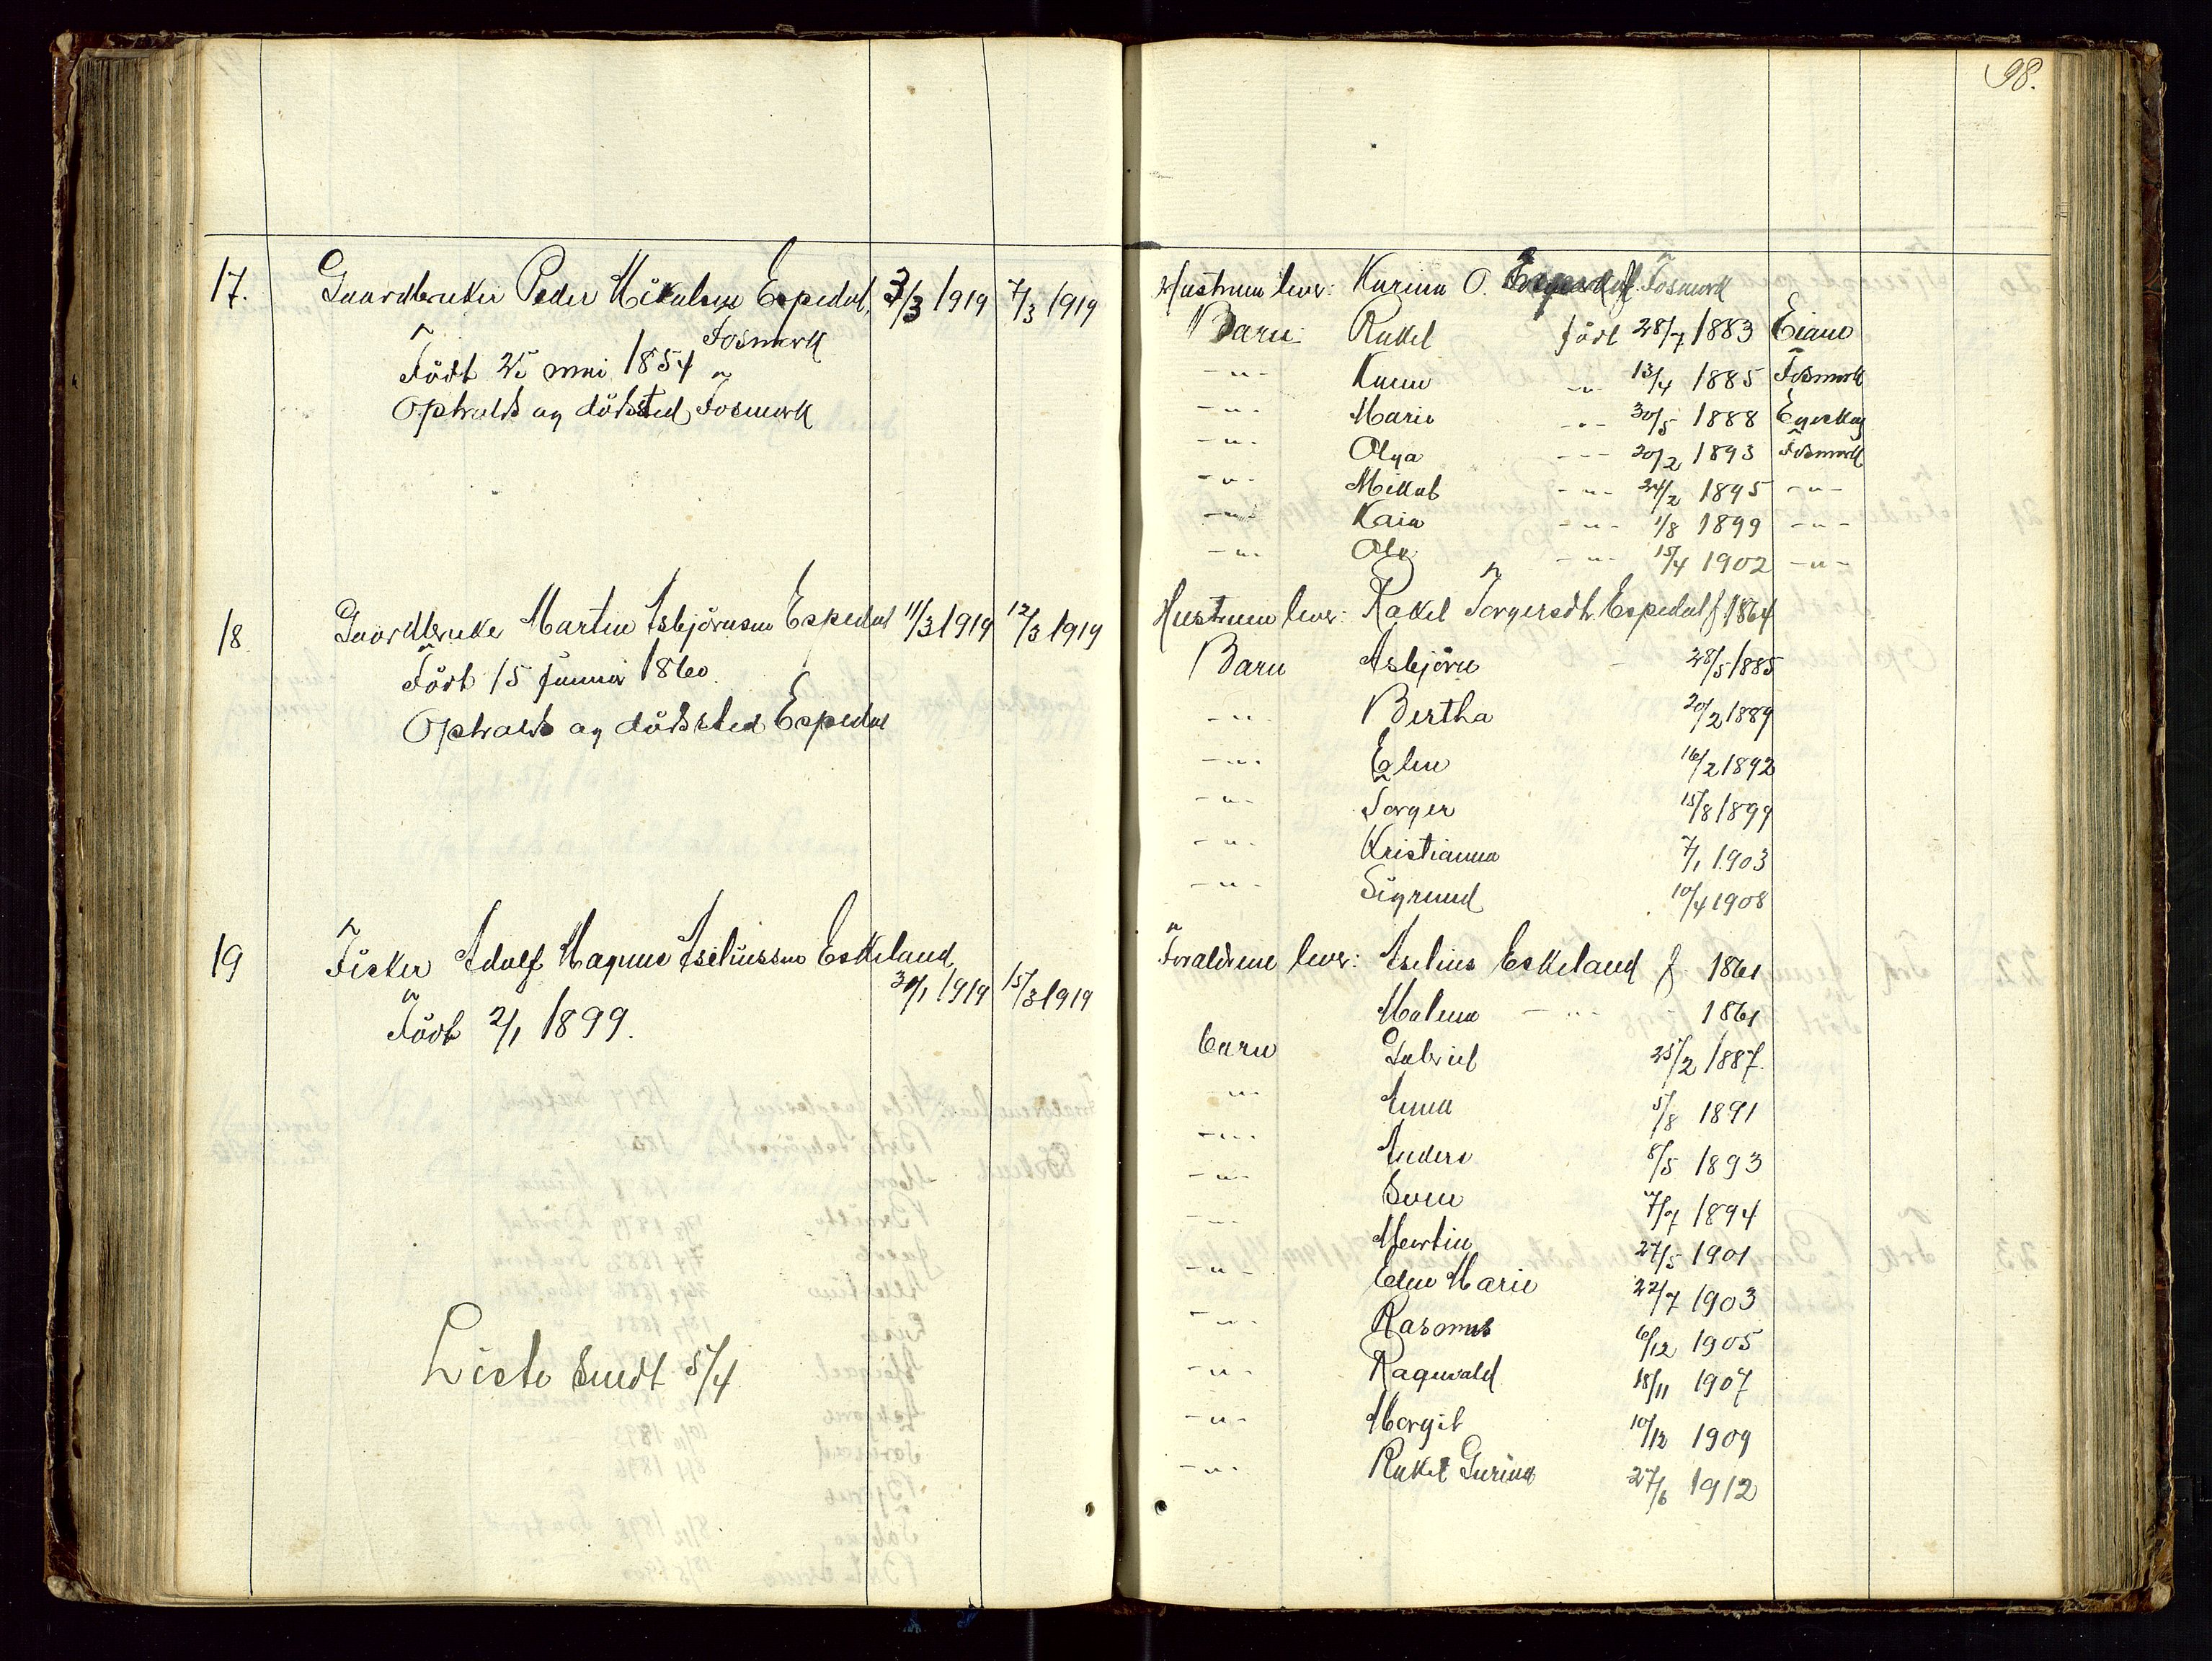 98.
17. Gaardbruker Peder Mikalsen Espedal, 3/3 1919 7/3 1919
Fosmark
Født 25 mai 1854
Opholds og dødssted Fosmark
18 Gaardbruker Martin Asbjørnsen Espedal 11/3 1919 12/3 1919
Født 15 januar 1860.
Opholds og dødssted Espedal
19 Fisker Adolf Magnus Aseliussen Eskeland
30/1 1919 15/3 1919
Født 2/1 1899.
Liste sendt 5/4
Hustruen lever: Karina O. Fosmark
Barn Rakel født 28/7 1883 Eiane
-"- Karen -"- 13/4 1885 Fosmark
-"- Marie -"- 30/5 1888 
-"- Olga -"- 20/2 1893 Fosmark
-"- Mikal -"- 24/2 1895 -"-
-"- Kaia -"- 1/8 1899 -"-
-"- Ola -"- 15/4 1902 -"-
Hustruen lever: Rakel Torgersdt. Espedal f. 1864
Barn Asbjørn 28/5 1885
-"- Bertha 20/2 1889
-"- Elen 16/2 1892
-"- Torger 15/8 1899
-"- Kristianna 7/1 1903
-"- Sigmund 10/4 1908
Foraldrene lever: Aselius Eskeland f. 1861
Malena -"- 1861
barn Gabriel 25/2 1887.
-"- Anna 5/8 1891
-"- Anders 8/5 1893
-"- Sven 7/7 1894
-"- Martin 27/5 1901
-"- Elen Marie 22/7 1903
-"- Rasmus 6/12 1905
-"- Ragnvald 18/11 1907
-"- Margit 10/12 1909
-"- Rakel Gurina 27/6 1912